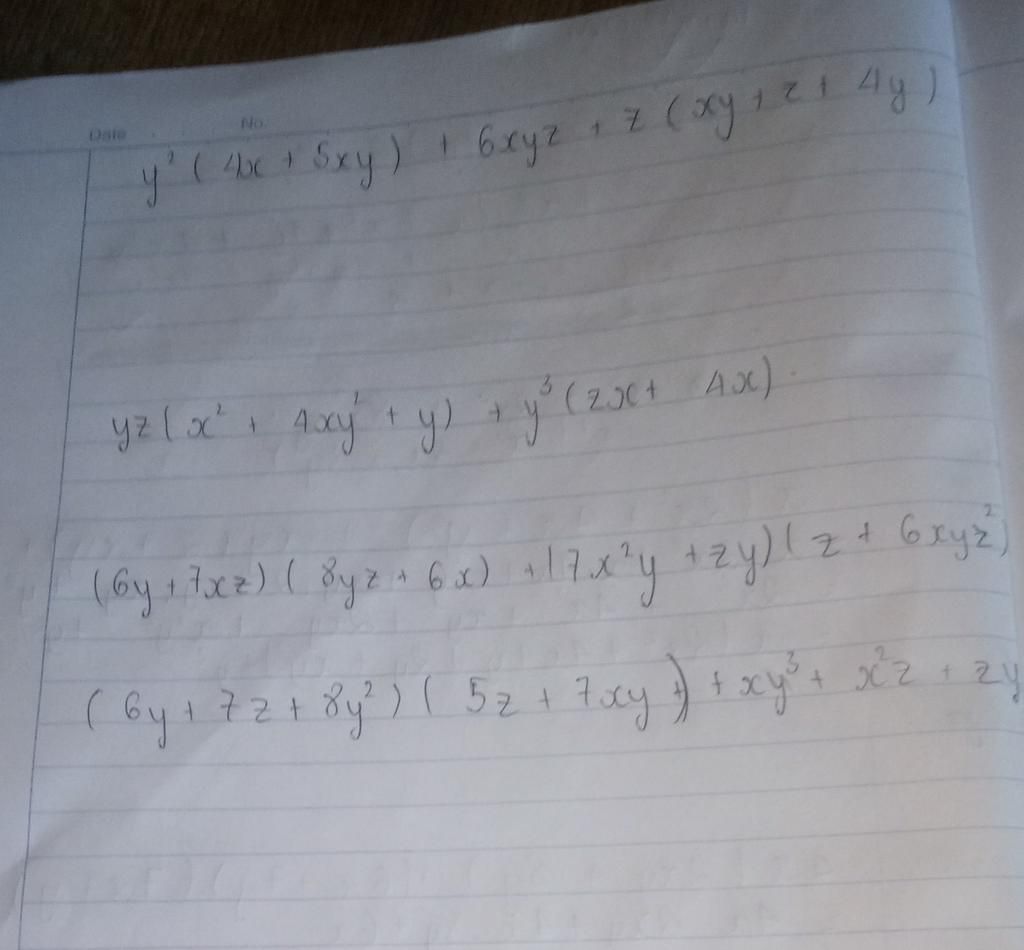 Date No.
y² (4x + 5xy) + 6xyz + z (xy + z + 4y)
yz (x² + 4xy² + y) + y³ (zx + 4x)
(6y + 7xz) (8yz + 6x) + (7x²y + zy) (z + 6xyz²)
(6y + 7z + 8y²) (5z + 7xy) + xy³ + x²z + zy